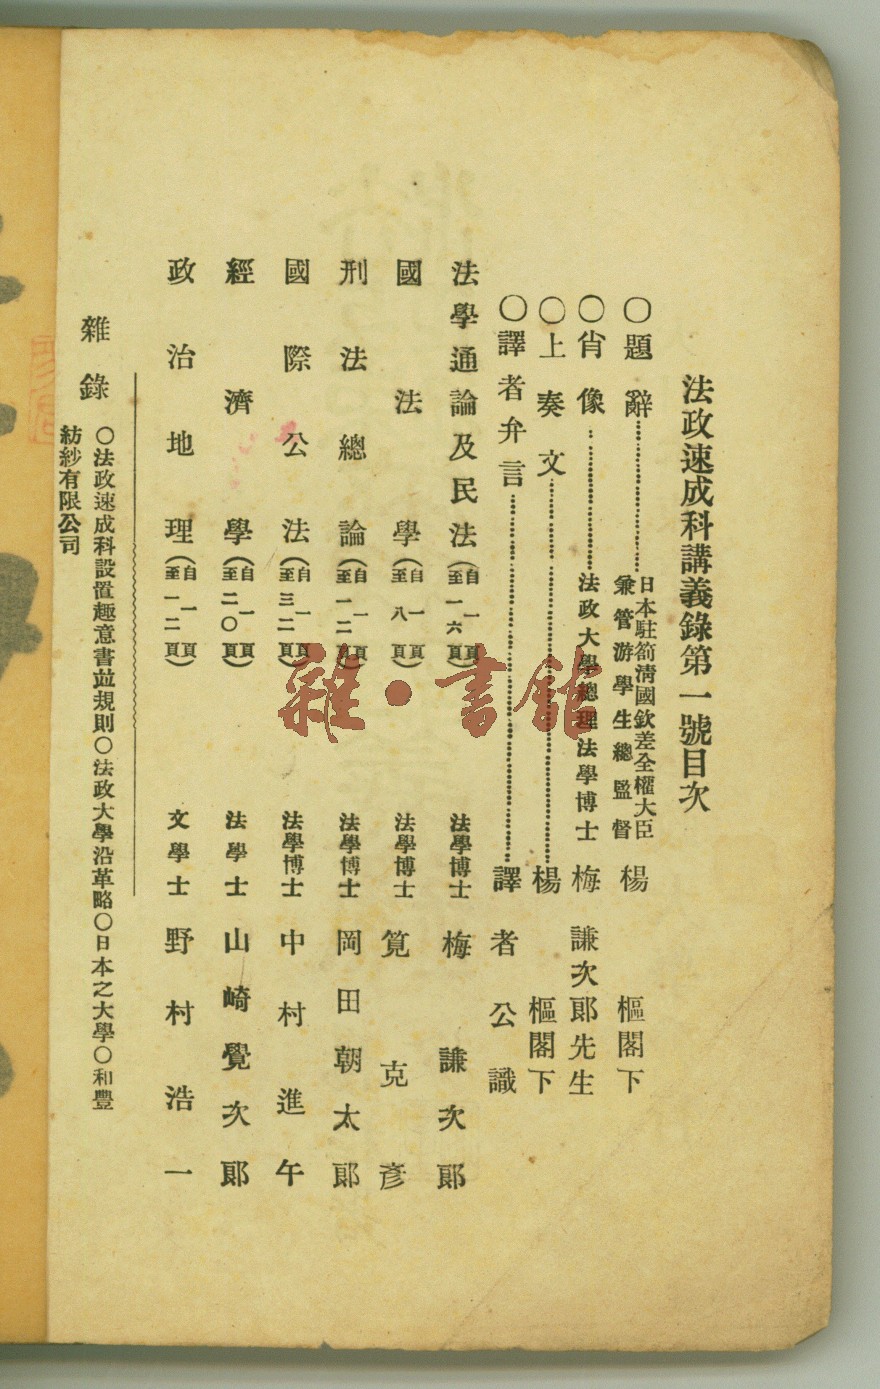 法政速成科講義錄第一號目次
〇題辭……日本駐箚淸國欽差全權大臣
兼管游學生總監督 楊樞閣下
〇肖像……法政大學總理法學博士 梅謙次郎先生
〇上奏文……楊樞閣下
〇譯者弁言……譯者公識
法學通論及民法(自一頁至一六頁) 法學博士 梅謙次郎
國法學(自一頁至八頁) 法學博士 筧克彥
刑法總論(自一頁至一二頁) 法學博士 岡田朝太郎
國際公法(自一頁至三二頁) 法學博士 中村進午
經濟學(自一頁至二〇頁) 法學士 山崎覺次郎
政治地理(自一頁至一二頁) 文學士 野村浩一
雜錄 〇法政速成科設置趣意書並規則〇法政大學沿革略〇日本之大學〇和豐
紡紗有限公司
雜·書館